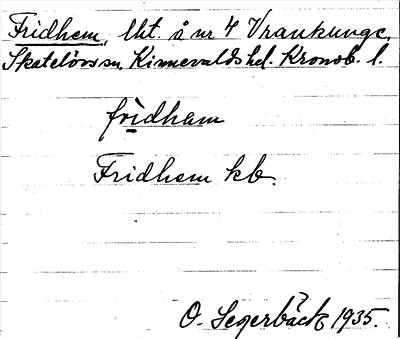 Fridhem, lht. å nr 4 Vrankunge,
Skatelövs sn, Kinnevalds hd. Kronob. l.
fridham
Fridhem kb.
O. Segerbäck 1935.